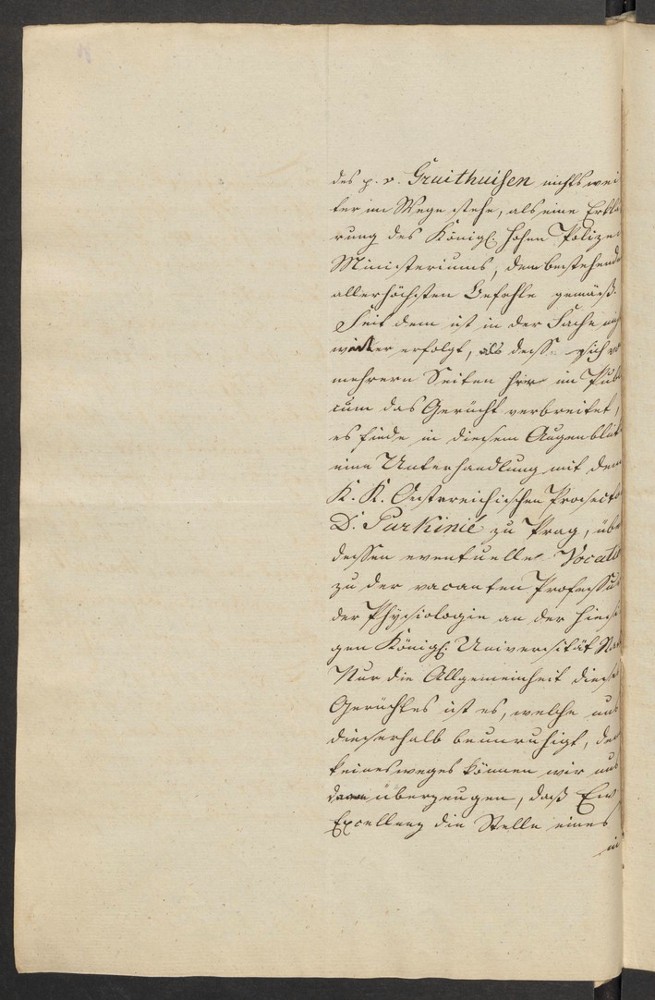 des p. v. Gruithuisen nichts wei
ter im Wege stehe, als eine Erklä
rung des Königl: hohen Polizei
Ministeriums, dem bestehende
allerhöchsten Befehle gemäß.
Seit dem ist in der Sache nich
weiter erfolgt, als dass sich vo
mehrern Seiten hier im Publi
cum das Gerücht verbreitet,
es finde in diesem Augenblick
eine Unterhandlung mit dem
K. K. Oesterreichischen Prosecto
D. Purkinié zu Prag, übe
dessen eventuelle Vocatio
zu der vacanten Professu
der Physiologie an der hiesi
gen Königl: Universität Sta
Nur die Allgemeinheit dieses
Gerüchtes ist es, welche uns
dieserhalb beunruhigt, den
keinesweges können wir uns
davon überzeugen, daß Ew
Excellenz die Stelle eines